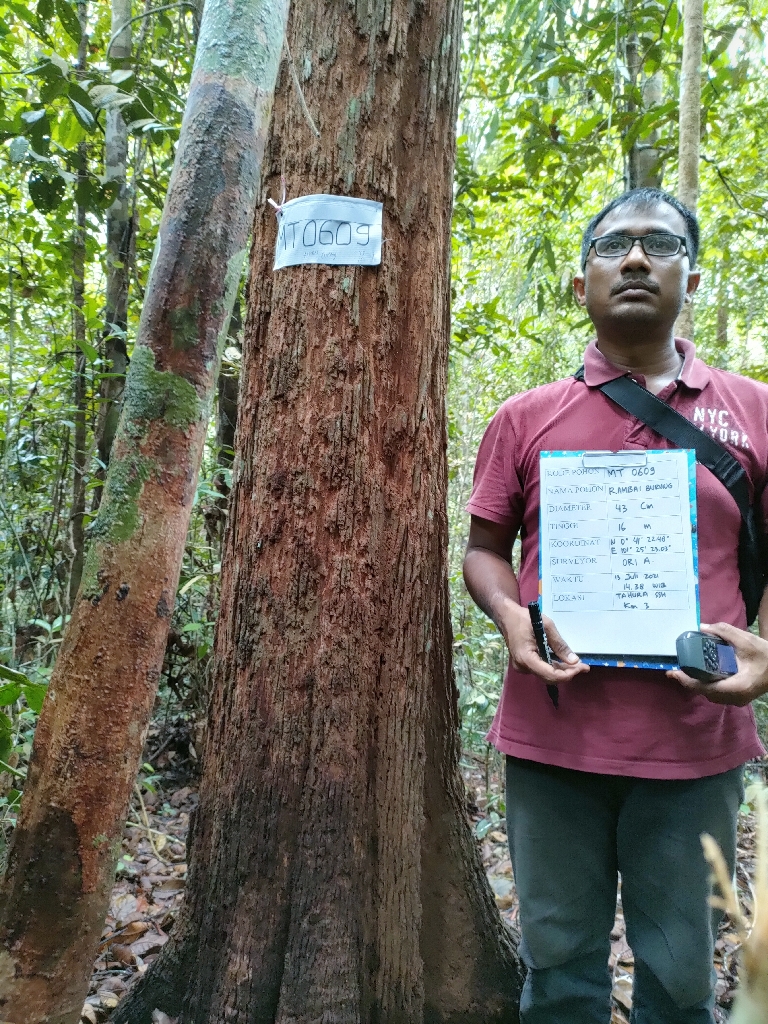 MT0609
NYC
KODE POHON MT 0609
NAMA POHON RAMBAI BURUNG
DIAMETER 43 Cm
TINGGI 16 m
KOORDINAT N 0° 41' 22.48"
E 101° 25' 23.03"
SURVEYOR ORI A
WAKTU 13 Juli 2021
14.38 WIB
LOKASI TAHURA SSH
Km 3